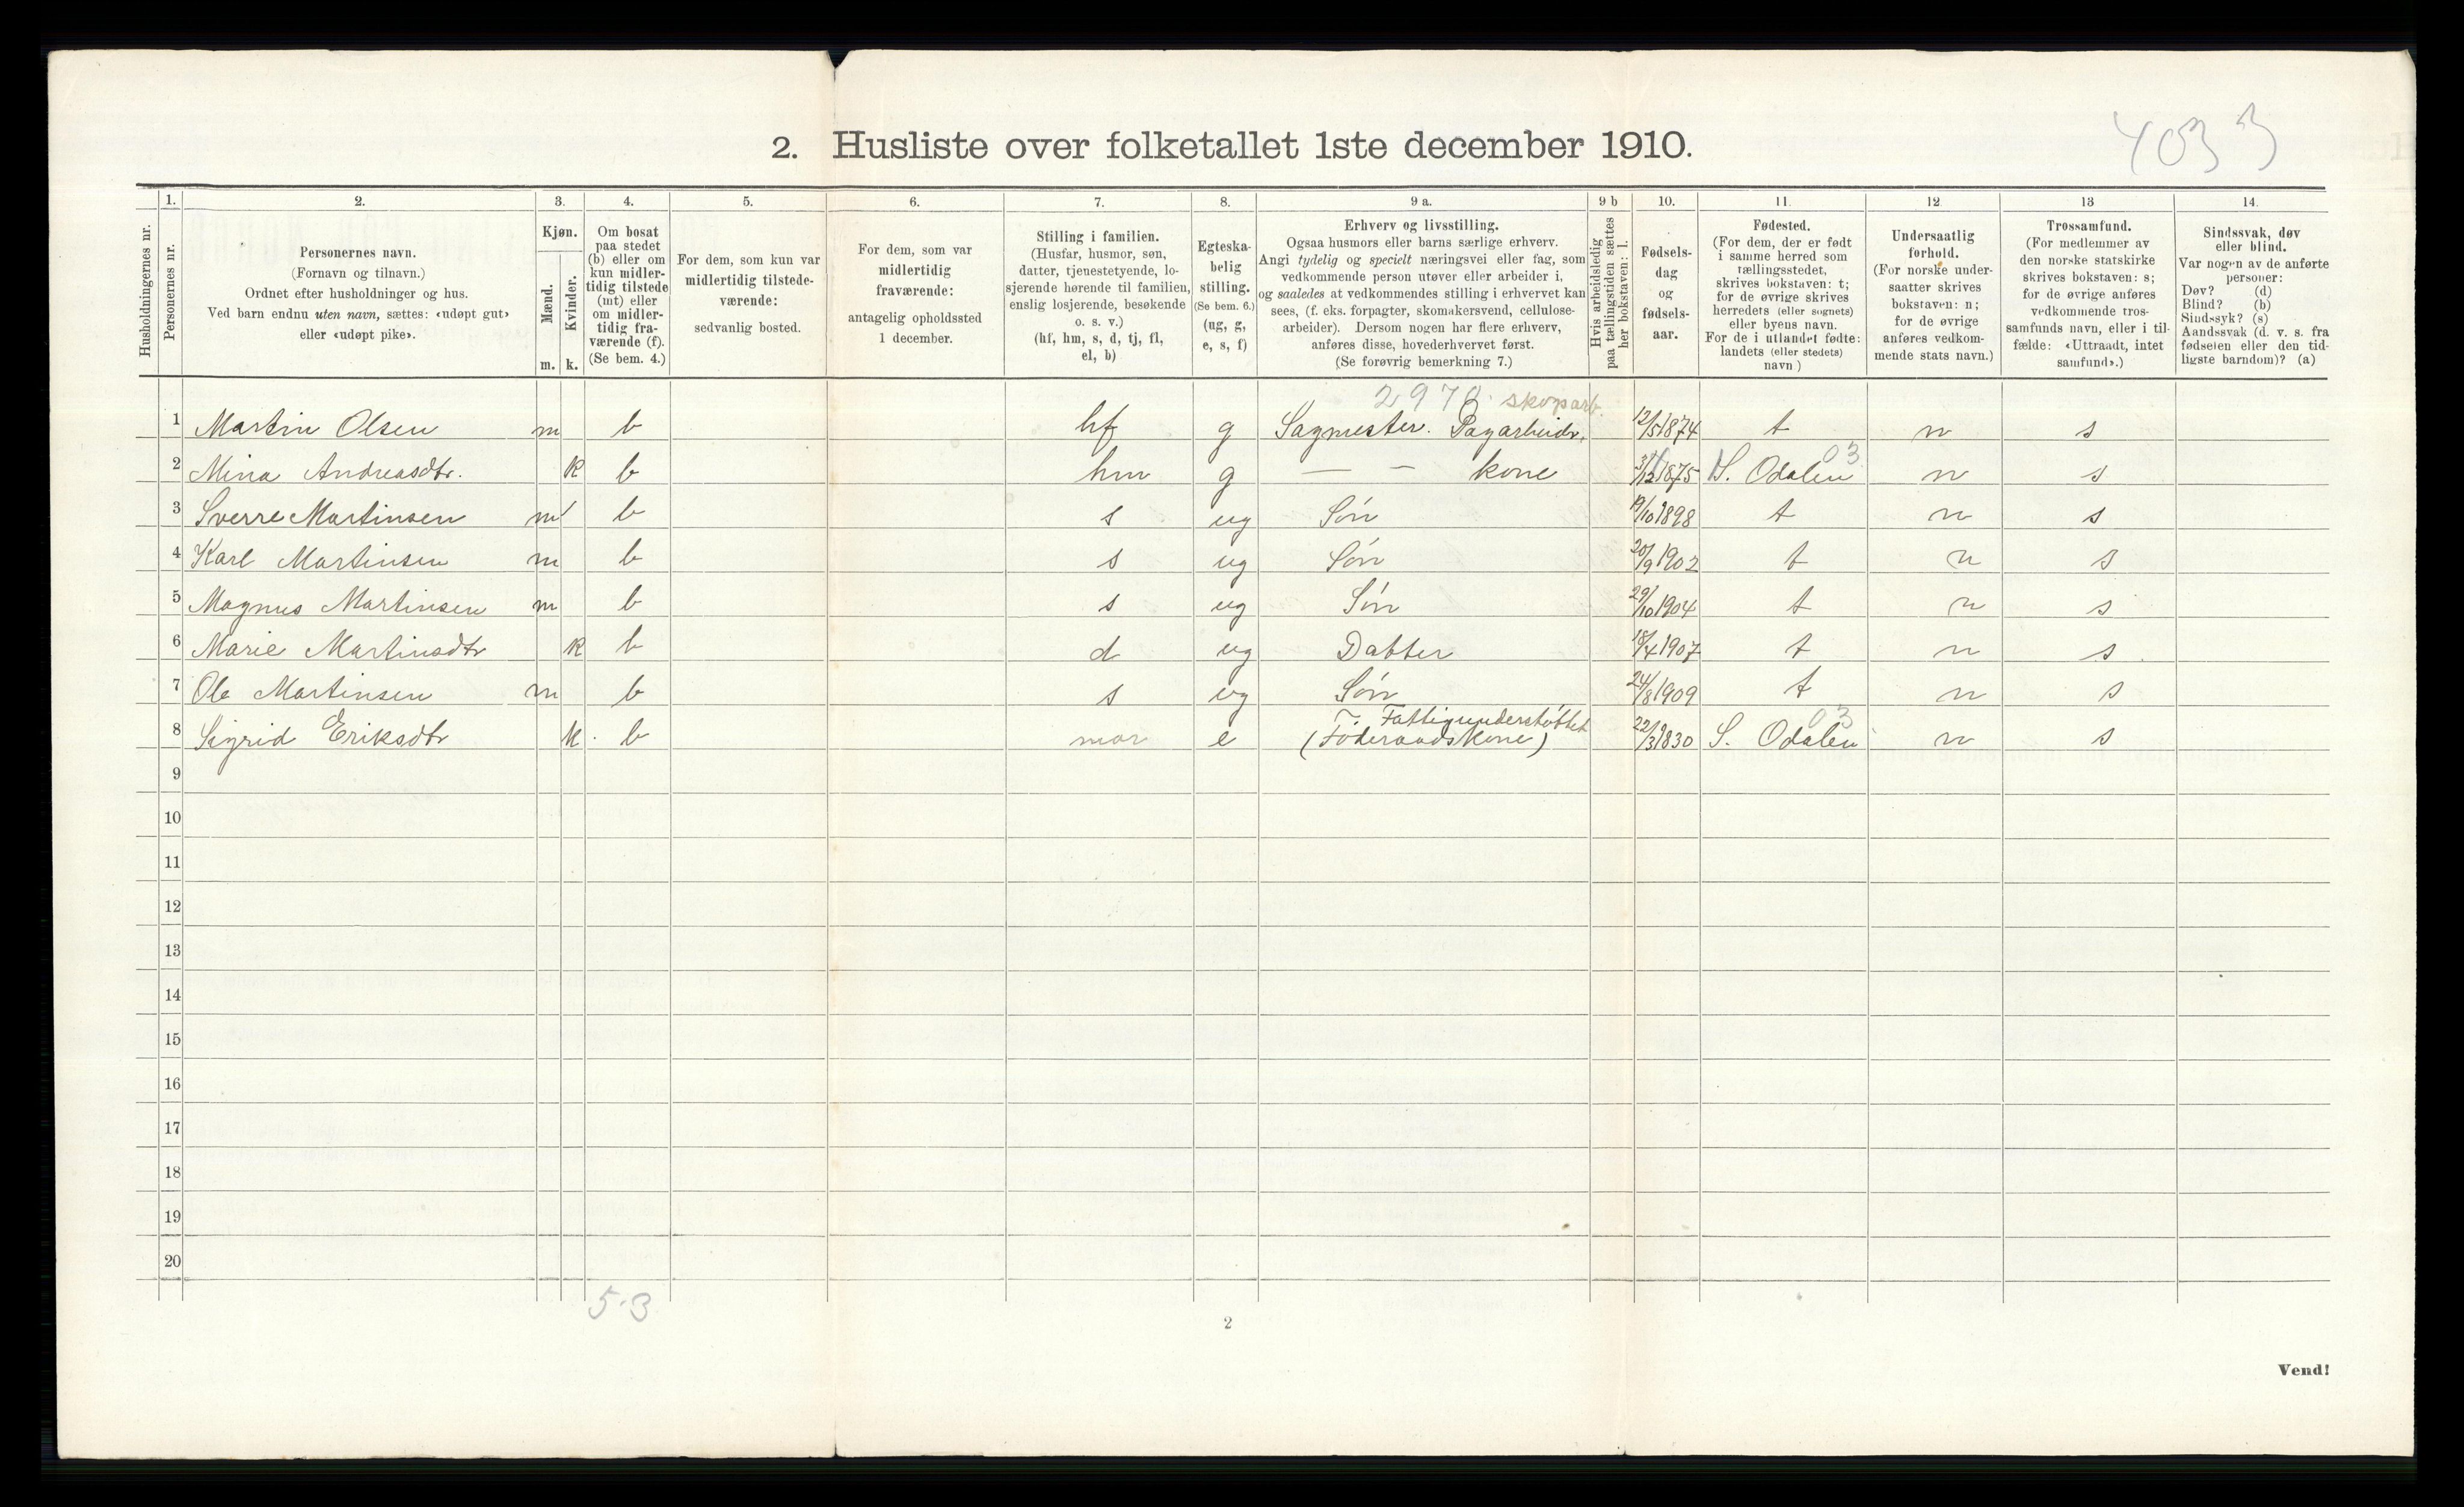 4033
2. Husliste over folketallet 1ste december 1910.
Husholdningernes nr.
1.
Personernes nr.
2.
Personernes navn.
(Fornavn og tilnavn.)
Ordnet efter husholdninger og hus.
Ved barn endnu uten navn, sættes: «udøpt gut»
eller «udøpt pike».
3.
Kjøn.
Mænd.
m.
Kvinder.
k.
4.
Om bosat
paa stedet
(b) eller om
kun midler-
tidig tilstede
(mt) eller
om midler-
tidig fra-
værende (f).
(Se bem. 4.)
5.
For dem, som kun var
midlertidig tilstede-
værende:
sedvanlig bosted.
6.
For dem, som var
midlertidig
fraværende:
antagelig opholdssted
1 december.
7.
Stilling i familien.
(Husfar, husmor, søn,
datter, tjenestetyende, lo-
sjerende hørende til familien,
enslig losjerende, besøkende
o. s. v.)
(hf, hm, s, d, tj, fl,
el, b)
8.
Egteska-
belig
stilling.
(Se bem. 6.)
(ug, g,
e, s, f)
9 a.
Erhverv og livsstilling.
Ogsaa husmors eller barns særlige erhverv.
Angi tydelig og specielt næringsvei eller fag, som
vedkommende person utøver eller arbeider i,
og saaledes at vedkommendes stilling i erhvervet kan
sees, (f. eks. forpagter, skomakersvend, cellulose-
arbeider). Dersom nogen har flere erhverv,
anføres disse, hovederhvervet først.
(Se forøvrig bemerkning 7.)
9 b
Hvis arbeidsledig
paa tællingstiden sættes
her bokstaven: l.
10.
Fødsels-
dag
og
fødsels-
aar.
11.
Fødested.
(For dem, der er født
i samme herred som
tællingsstedet,
skrives bokstaven: t;
for de øvrige skrives
herredets (eller sognets)
eller byens navn.
For de i utlandet fødte:
landets (eller stedets)
navn)
12.
Undersaatlig
forhold.
(For norske under-
saatter skrives
bokstaven: n;
for de øvrige
anføres vedkom-
mende stats navn.)
13
Trossamfund.
(For medlemmer av
den norske statskirke
skrives bokstaven: s;
for de øvrige anføres
vedkommende tros-
samfunds navn, eller i til-
fælde: «Uttraadt, intet
samfund».)
14.
Sindssvak, døv
eller blind.
Var nogen av de anførte
personer:
Døv? (d)
Blind? (b)
Sindssyk? (s)
Aandssvak (d. v. s. fra
fødselen eller den tid-
ligste barndom)? (a)
skogarb.
1 Martin Olsen m b hf g Sagmester. 12/5 1874 t n s
03
2 Mina Andreasdtr. k b hm g — — kone 1875 S. Odalen n s
3 Sverre Martinsen m b s ug Søn 19/10 1898 t n s
4 Karl Martinsen m b s ug Søn 20/9 1902 t n s
5 Magnus Martinsen m b s ug Søn 29/10 1904 t n s
6 Marie Martinsdtr k b d ug Datter 18/4 1907 t n s
7 Ole Martinsen m b s ug Søn 24/8 1909 t n s
Fattigunderstøttet 03
8 Sigrid Eriksdtr k. b mor e (Føderaadskone) 22/3 1830 S. Odalen n s
9
10
11
12
13
14
15
16
17
18
19
20
5-3
2
Vend!